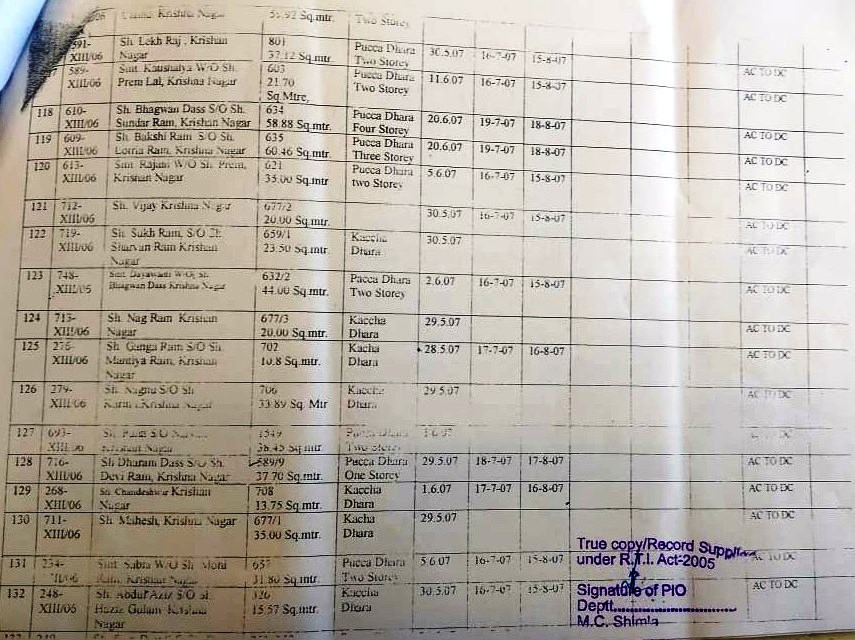 Krishna Nagar 55.92 Sq.mtr. Two Storey
591- Sh. Lekh Raj , Krishan 801 Pucca Dhara 30.5.07 16-7-07 15-8-07 AC TO DC
XIII/06 Nagar 37.12 Sq.mtr. Two Storey
589- Smt. Kaushalya W/O Sh. 603 Pucca Dhara 11.6.07 16-7-07 15-8-07 AC TO DC
XIII/06 Prem Lal, Krishna Nagar 21.70 Two Storey
Sq.Mtre,
118 610- Sh. Bhagwan Dass S/O Sh. 634 Pucca Dhara 20.6.07 19-7-07 18-8-07 AC TO DC
XIII/06 Sundar Ram, Krishan Nagar 58.88 Sq.mtr. Four Storey
119 609- Sh. Bakshi Ram S/O Sh. 635 Pucca Dhara 20.6.07 19-7-07 18-8-07 AC TO DC
XIII/06 Ram, Krishna Nagar 60.46 Sq.mtr. Three Storey
120 613- Smt. Rajani W/O Sh. Prem, 621 Pucca Dhara 5.6.07 16-7-07 15-8-07 AC TO DC
XIII/06 Krishan Nagar 35.00 Sq.mtr. two Storey
121 712- Sh. Vijay Krishna Nagar 677/2 30.5.07 16-7-07 15-8-07 AC TO DC
XIII/06 20.00 Sq.mtr.
122 719- Sh. Sukh Ram, S/O Sh 659/1 Kaccha 30.5.07 AC TO DC
XIII/06 Sharvan Ram Krishan 23.50 Sq.mtr. Dhara
Nagar
123 748- Smt. Dayawanti W/O, Sh. 632/2 Pacca Dhara 2.6.07 16-7-07 15-8-07 AC TO DC
Bhagwan Dass Krishna Nagar 44.00 Sq.mtr. Two Storey
124 713- Sh. Nag Ram Krishan 677/3 Kaccha 29.5.07 AC TO DC
XIII/06 Nagar 20.00 Sq.mtr. Dhara
125 Sh. Ganga Ram S/O Sh. 702 Kacha 28.5.07 17-7-07 16-8-07 AC TO DC
XIII/06 Mantiya Ram, Krishan 10.8 Sq.mtr. Dhara
Nagar
126 279- Sh. S/O Sh 706 Kaccha 29.5.07 AC TO DC
XIII/06 Krishna Nagar 33.89 Sq. Mtr Dhara
127 693- Sh. S/O 1549 Pucca Dhara 1.6.07
XIII/06 Krishan Nagar 38.45 Sq mtr Two Storey
128 716- Sh Dharam Dass S/O Sh. 589/9 Pucca Dhara 29.5.07 18-7-07 17-8-07 AC TO DC
XIII/06 Devi Ram, Krishna Nagar 37.70 Sq.mtr. One Storey
129 268- Sh. Chandeshwar Krishan 708 Kaccha 1.6.07 17-7-07 16-8-07 AC TO DC
XIII/06 Nagar 13.75 Sq.mtr. Dhara
130 711- Sh. Mahesh, Krishna Nagar 677/1 Kacha 29.5.07 AC TO DC
XIII/06 35.00 Sq.mtr. Dhara
True copy/Record Supplied
under R.T.I. Act-2005
131 234- Smt. Sabra W/O Sh. Moni 657 Pucca Dhara 5.6.07 16-7-07 15-8-07 AC TO DC
Ram, Krishan Nagar 31.80 Sq.mtr. Two Storey
132 248- Sh. Abdul Aziz S/O Sh. 326 Kaccha 30.5.07 16-7-07 15-8-07 AC TO DC
XIII/06 Haziz Gulam Krishna 15.57 Sq.mtr. Dhara
Nagar
Signature of PIO
Deptt.
M.C. Shimla